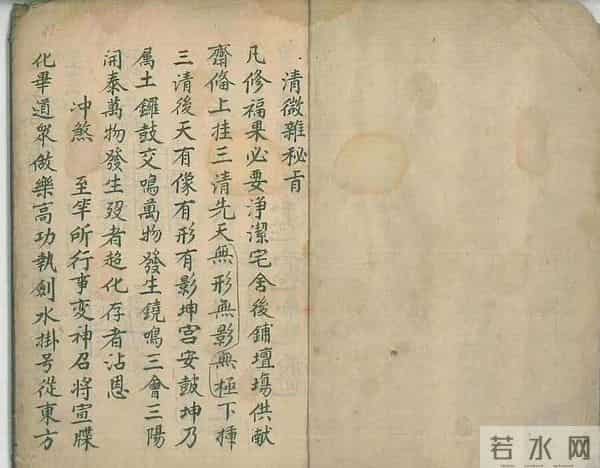 清微雜秘旨
凡修福果必要淨潔宅舍後鋪壇塲供献
齋俻上挂三清先天無形無影無極下揷
三清後天有像有形有影坤宫安鼓坤乃
属土鑼鼓交鳴萬物發生鐃鳴三會三陽
開泰萬物發生殁者超化存者沾恩
冲煞　至竿所行事变神召將宣牒
化畢道眾做樂高功執劍水掛号從東方
若水网